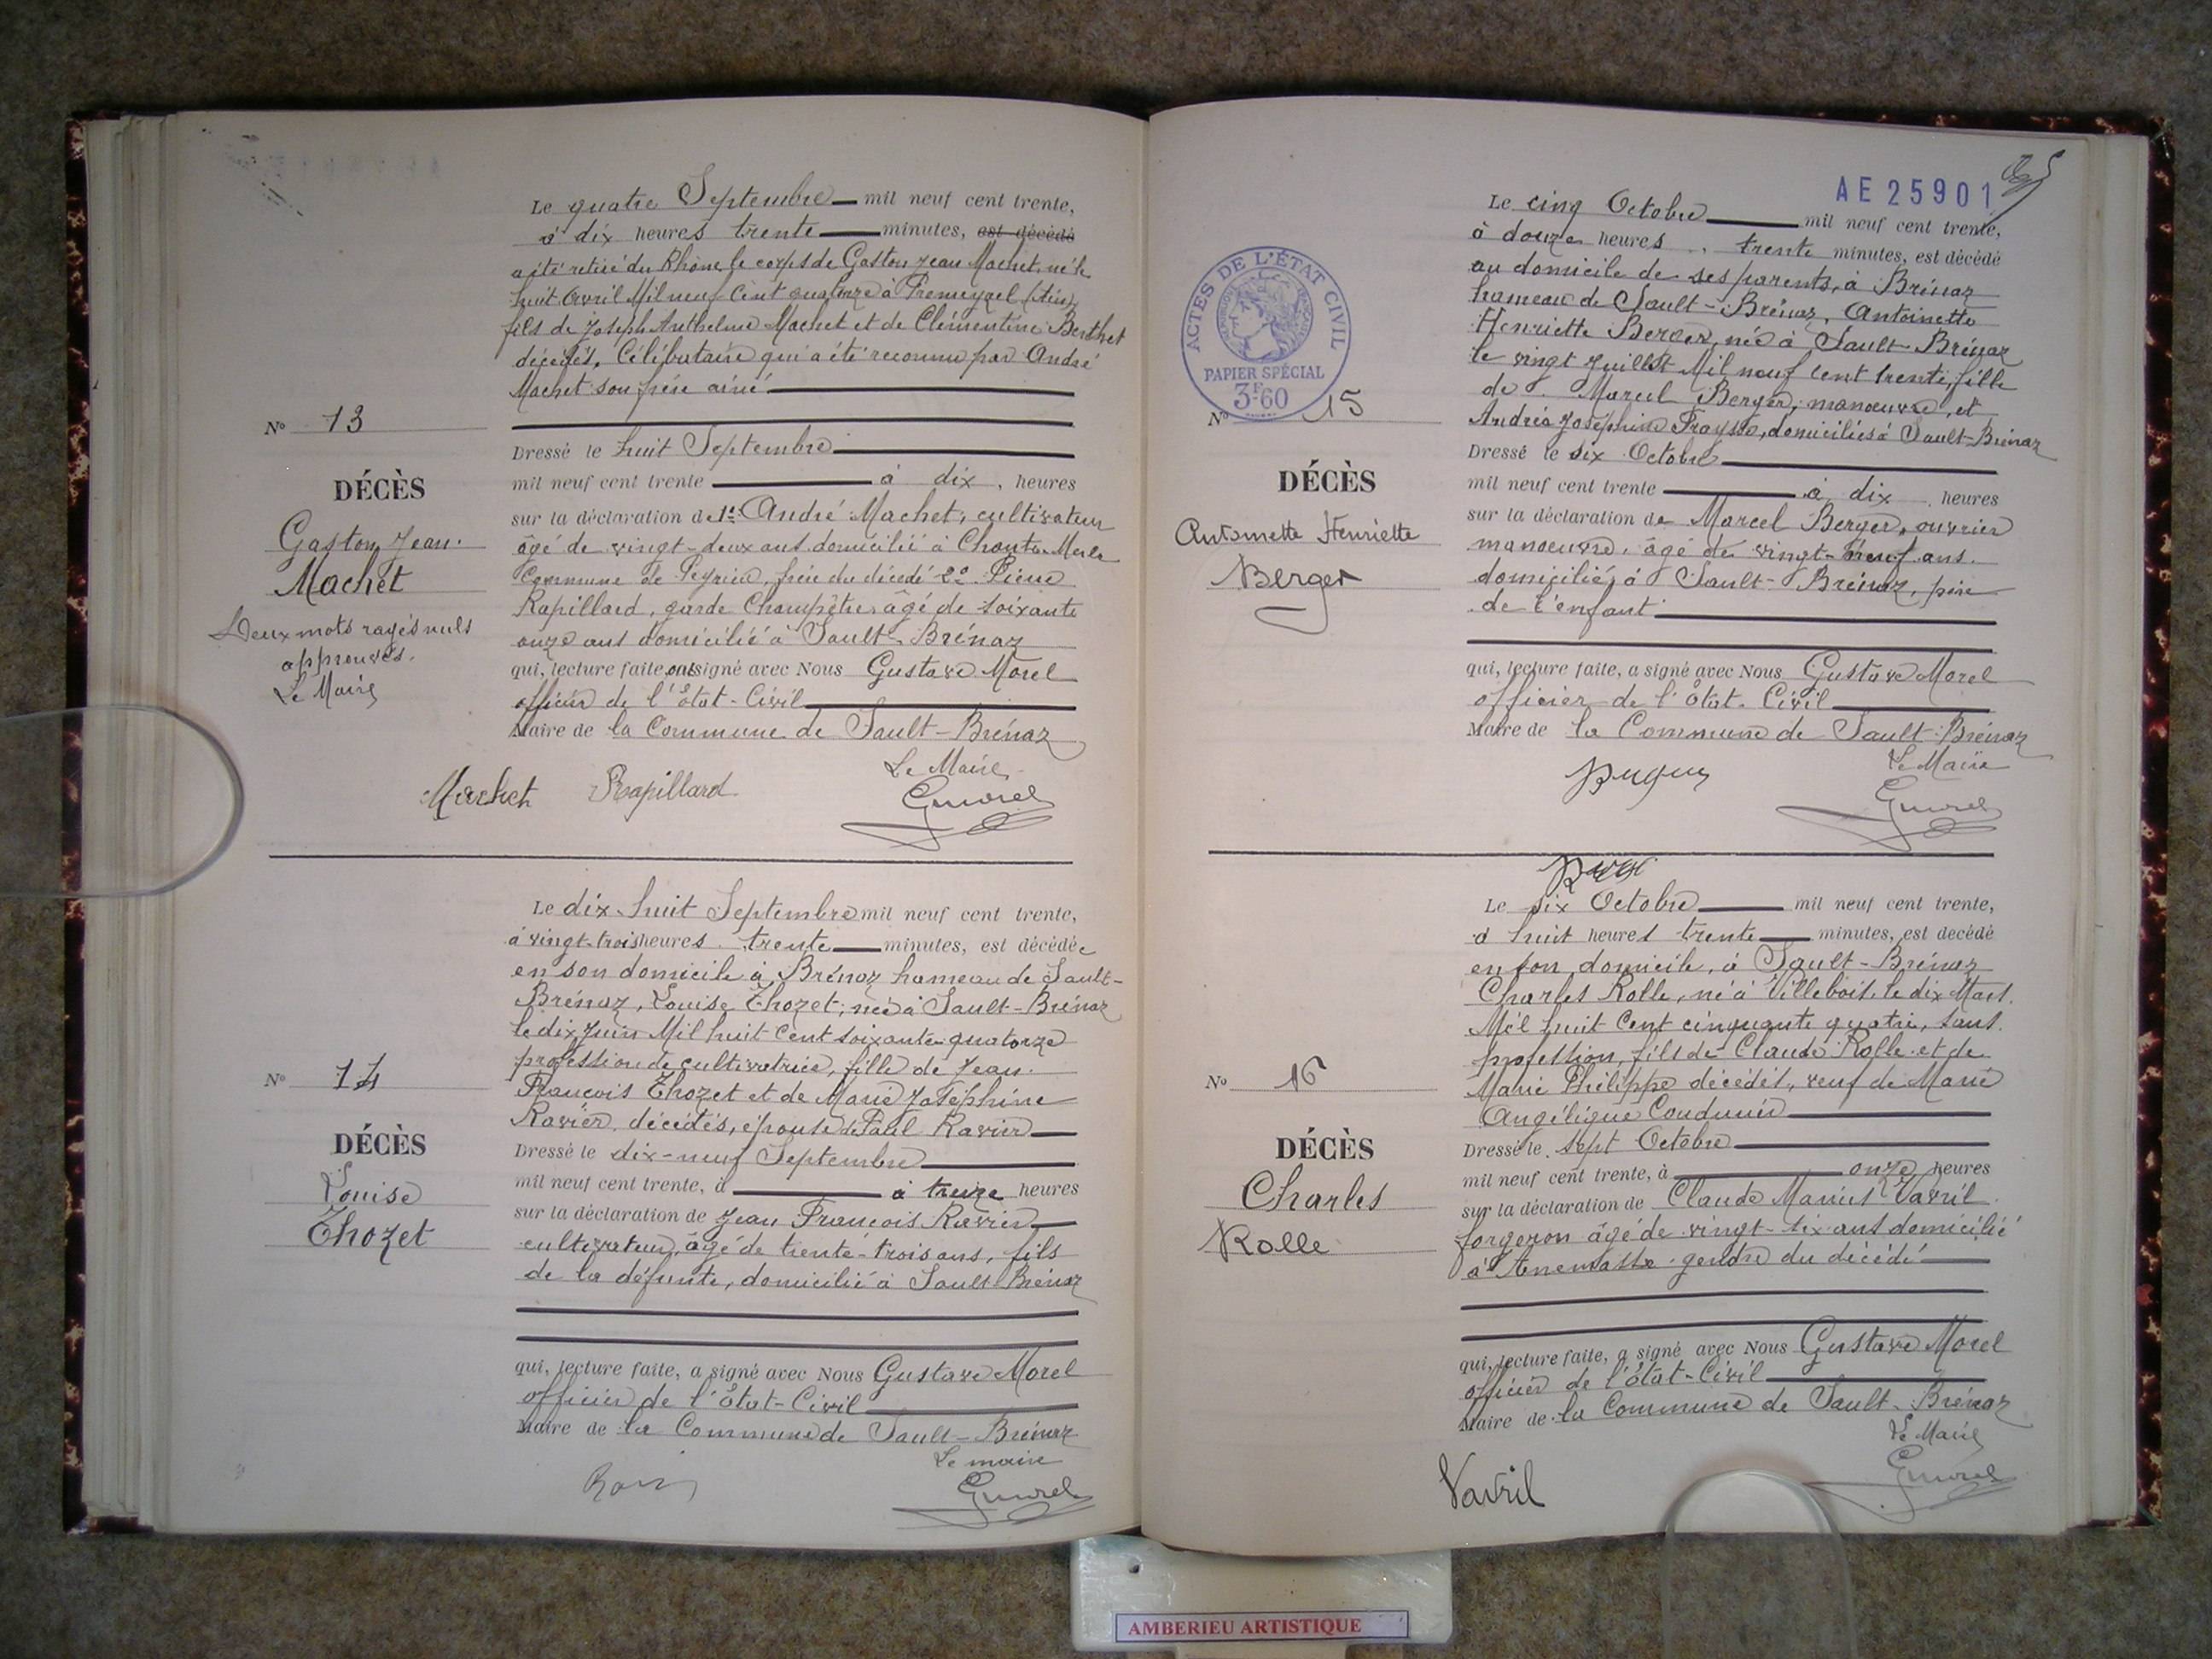 Le quatre Septembre mil neuf cent trente,
à dix heures trente minutes, est décédé
a été retiré du Rhône le corps de Gaston Jean Machet, né le
huit Avril Mil neuf Cent quatorze à Premeyzel (Ain)
fils de Joseph Anthelme Machet et de Clémentine Berthet
décédés, Célibataire qui a été reconnu par André
Machet son frère ainé
Nº 13
Dressé le huit Septembre
mil neuf cent trente à dix heures
DÉCÈS
Gaston Jean
Machet
Deux mots rayés nuls
approuvés.
Le Maire
sur la déclaration de 1º André Machet, cultivateur
âgé de vingt-deux ans domicilié à Chante-Merle
Commune de Peyrieu, frère du décédé 2º Pierre
Rapillard, garde Champêtre, âgé de soixante
onze ans domicilié à Sault-Brénaz
qui, lecture faite, ont signé avec Nous Gustave Morel
officier de l'État-Civil
Maire de la Commune de Sault-Brénaz
Le Maire
Machet Rapillard GMorel
Le dix-huit Septembre mil neuf cent trente,
à vingt-trois heures trente minutes, est décédée
en son domicile à Brénaz hameau de Sault-
Brénaz, Louise Thozet, née à Sault-Brénaz
le dix Juin Mil huit Cent soixante-quatorze
profession de cultivatrice, fille de Jean
François Thozet et de Marie Joséphine
Ravier, décédés, épouse de Paul Ravier
Nº 14
DÉCÈS
Louise
Thozet
Dressé le dix-neuf Septembre
mil neuf cent trente, à à treize heures
sur la déclaration de Jean François Ravier
cultivateur, âgé de trente-trois ans, fils
de la défunte, domicilié à Sault-Brénaz
qui, lecture faite, a signé avec Nous Gustave Morel
officier de l'État-Civil
Maire de la Commune de Sault-Brénaz
Le maire
GMorel
AE 25901
ACTES DE L'ÉTAT CIVIL
PAPIER SPÉCIAL
3F60
Le cinq Octobre mil neuf cent trente,
à douze heures, trente minutes, est décédé
au domicile de ses parents, à Brénaz
hameau de Sault-Brénaz, Antoinette
Henriette Berger, née à Sault-Brénaz
le vingt Juillet Mil neuf Cent trente, fille
de Marcel Berger, manoeuvre, et
Andréa Joséphine Fraysse, domiciliés à Sault-Brénaz
Nº 15
DÉCÈS
Antoinette Henriette
Berger
Dressé le six Octobre
mil neuf cent trente à dix heures
sur la déclaration de Marcel Berger, ouvrier
manoeuvre, âgé de vingt-neuf ans
domicilié, à Sault-Brénaz, père
de l'enfant
qui, lecture faite, a signé avec Nous Gustave Morel
officier de l'État-Civil
Maire de la Commune de Sault-Brénaz
Le Maire
GMorel
Le six Octobre mil neuf cent trente,
à huit heures trente minutes, est décédé
en son domicile, à Sault-Brénaz
Charles Rolle, né à Villebois, le dix Mars
Mil huit Cent cinquante quatre, sans
profession, fils de Claude Rolle et de
Marie Philippe décédés, veuf de Marie
Angélique Coudurier
Nº 16
DÉCÈS
Charles
Rolle
Dressé le sept Octobre
mil neuf cent trente, à onze heures
sur la déclaration de Claude Marius Vavril
forgeron âgé de vingt-six ans domicilié
à Annemasse gendre du décédé
qui, lecture faite, a signé avec Nous Gustave Morel
officier de l'État-Civil
Maire de la Commune de Sault-Brénaz
Le Maire
Vavril GMorel
AMBERIEU ARTISTIQUE